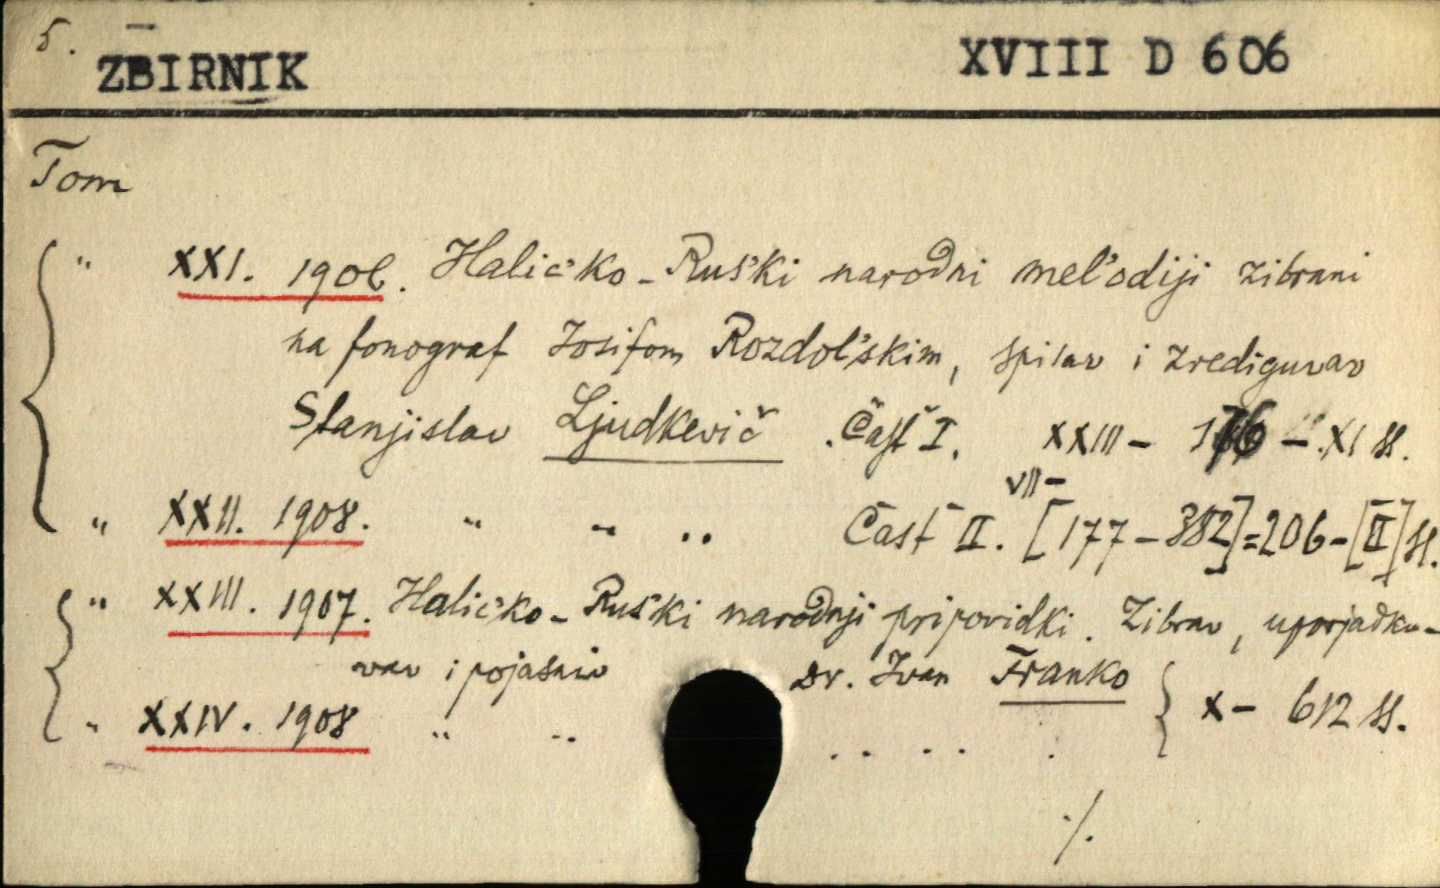 5.
ZBIRNIK XVIII D 606
Tom
" XXI. 1906. Halić'ko-Rus'ki narodni mel'odiji zibrani
na fonograf Josifom Rozdol'skim, spisav i zrediguvav
Stanjislav Ljudkevič. Časť I. XXIII- 176 - XI SS.
VII-
" XXII. 1908. " " " Časť II. [177-382]=206-[II] SS.
" XXIII. 1907. Halić'ko-Rus'ki narodnji pripovidki. Zibrav, uporjadku-
vav i pojasniv Dr. Ivan Franko
" XXIV. 1908 " " " " " X- 612 SS.
./.